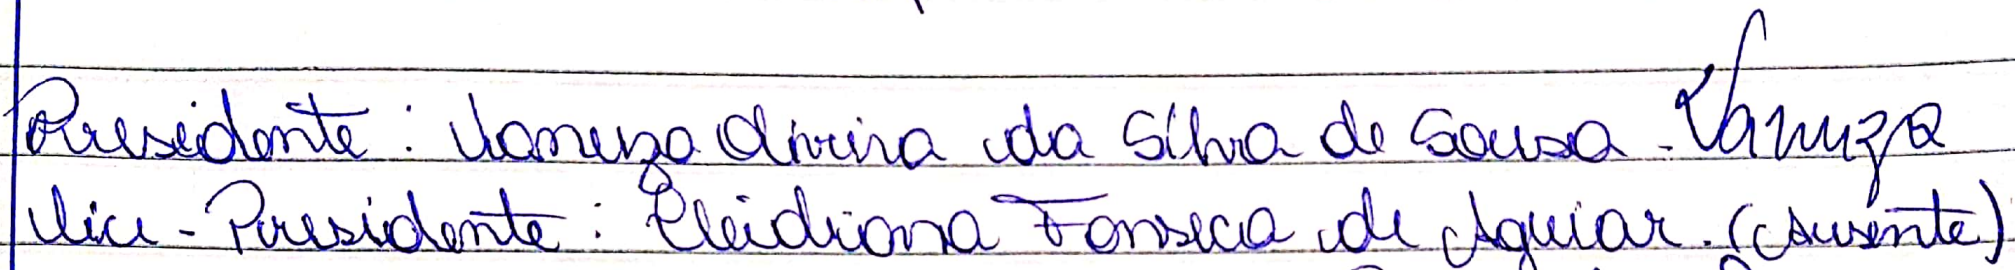 Presidente: Vanuza divina da Silva de Sousa - Vanuza
Vice - Presidente: Cleidiana Fonseca de Aguiar. (Ausente)